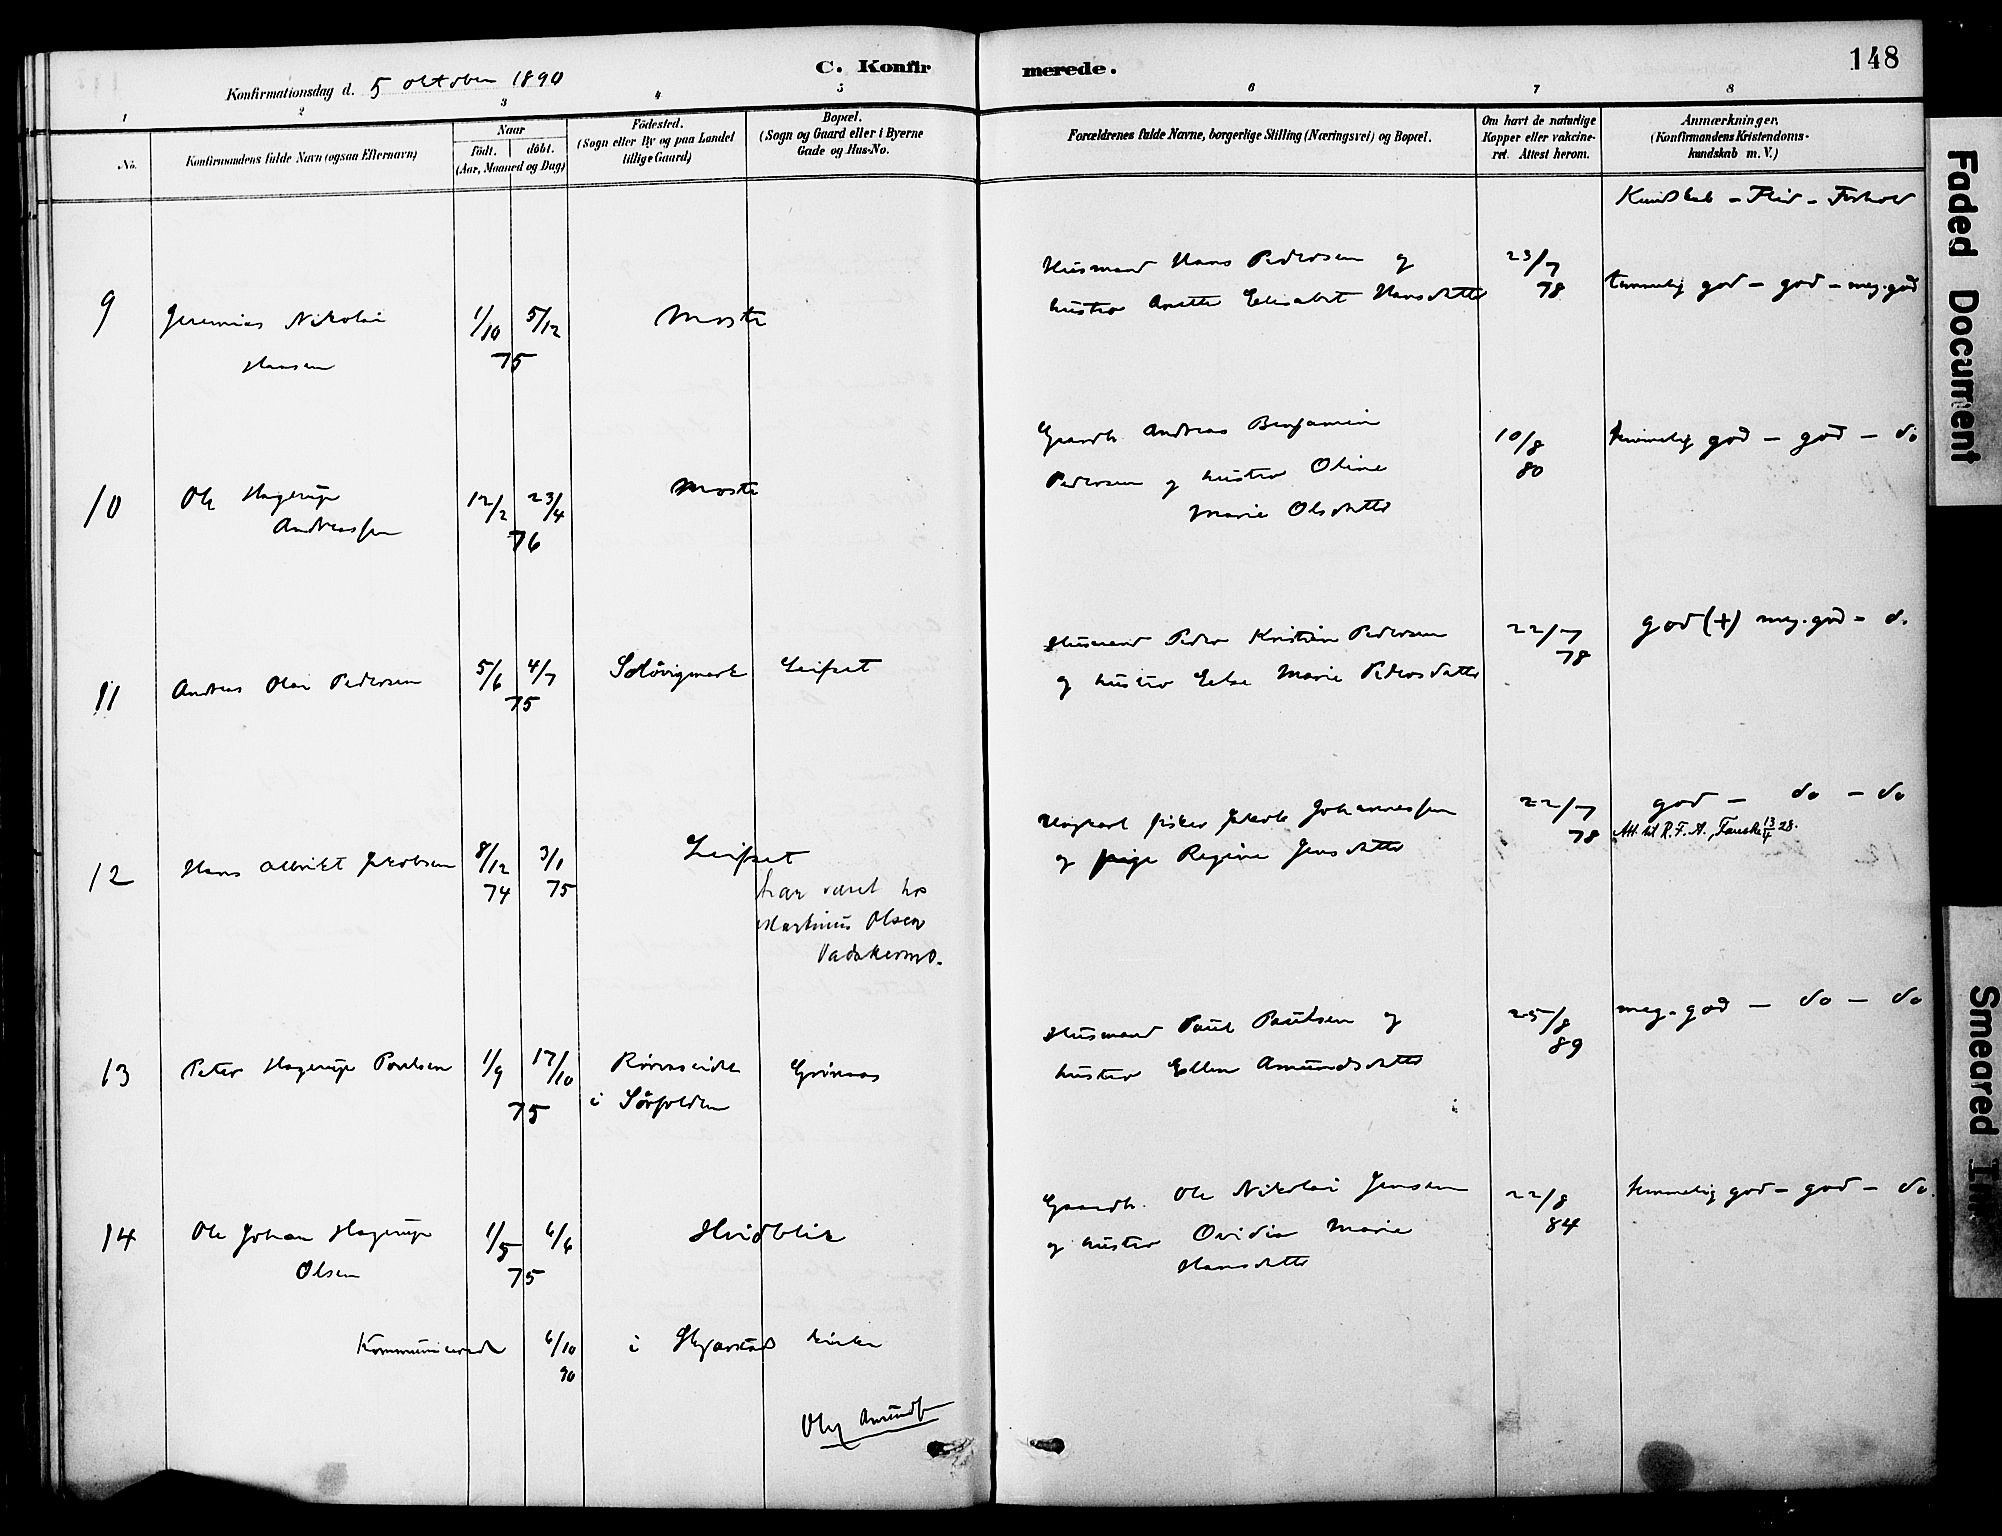 148
C. Konfirmerede.
Konfirmationsdag d. 5 oktober 1890
1 2 3 4 5 6 7 8
No.
Konfirmandens fulde Navn (ogsaa Efternavn)
Naar
födt. döbt.
(Aar, Maaned og Dag)
Födested.
(Sogn eller By og paa Landet
tillige Gaard)
Bopæl.
(Sogn og Gaard eller i Byerne
Gade og Hus-No.
Forældrenes fulde Navne, borgerlige Stilling (Næringsvei) og Bopæl.
Om havt de naturlige
Kopper eller vakcine-
ret. Attest herom.
Anmærkninger.
(Konfirmandens Kristendoms-
kundskab m. V.)
Kundskab – Flid – Forhold
9 Jeremias Nikolai
Hansen
1/10 5/12
75
Moste
Husmand Hans Pedersen og
hustro Anette Elisabet Hansdatter
23/7
78
temmelig god – god – meg. god
10 Ole Hagerup
Andreassen
12/2 23/4
76
Moste
Gaardb. Andreas Benjamin
Pedersen og hustro Oline
Marie Olsdatter
10/8
80
temmelig god – god – do
11 Andreas Olai Pedersen
5/6 4/7
75
Leifset
Husmand Peder Kristian Pedersen
og hustro Else Marie Pedersdatter
22/7
78
god (+) meg. god – do
12 Hans Albrikt Jakobsen
8/12 3/1
74 75
Leifset
har været hos
Martinus Olsen
Vadskermo.
Ungkarl fisker Jakob Johannessen
og pige Regine Jensdatter
22/7
78
god – do – do
Att. til R. F. A., Fauske 13/5 28.
13 Peter Hagerup Paulsen
1/9 17/10
75
i Sörfolden
Grönaas
Husmand Paul Paulsen og
hustro Ellen Amundsdatter
25/8
89
meg. god – do – do
14 Ole Johan Hagerup
Olsen
1/5 6/6
75
Hvidblik
Gaardb. Ole Nikolai Jensen
og hustro Ovidia Marie
Hansdatter
22/8
84
temmelig god – god – do.
Kommunicerede 6/10 i Skjerstad kirke
90
Faded Document
Smeared Ink